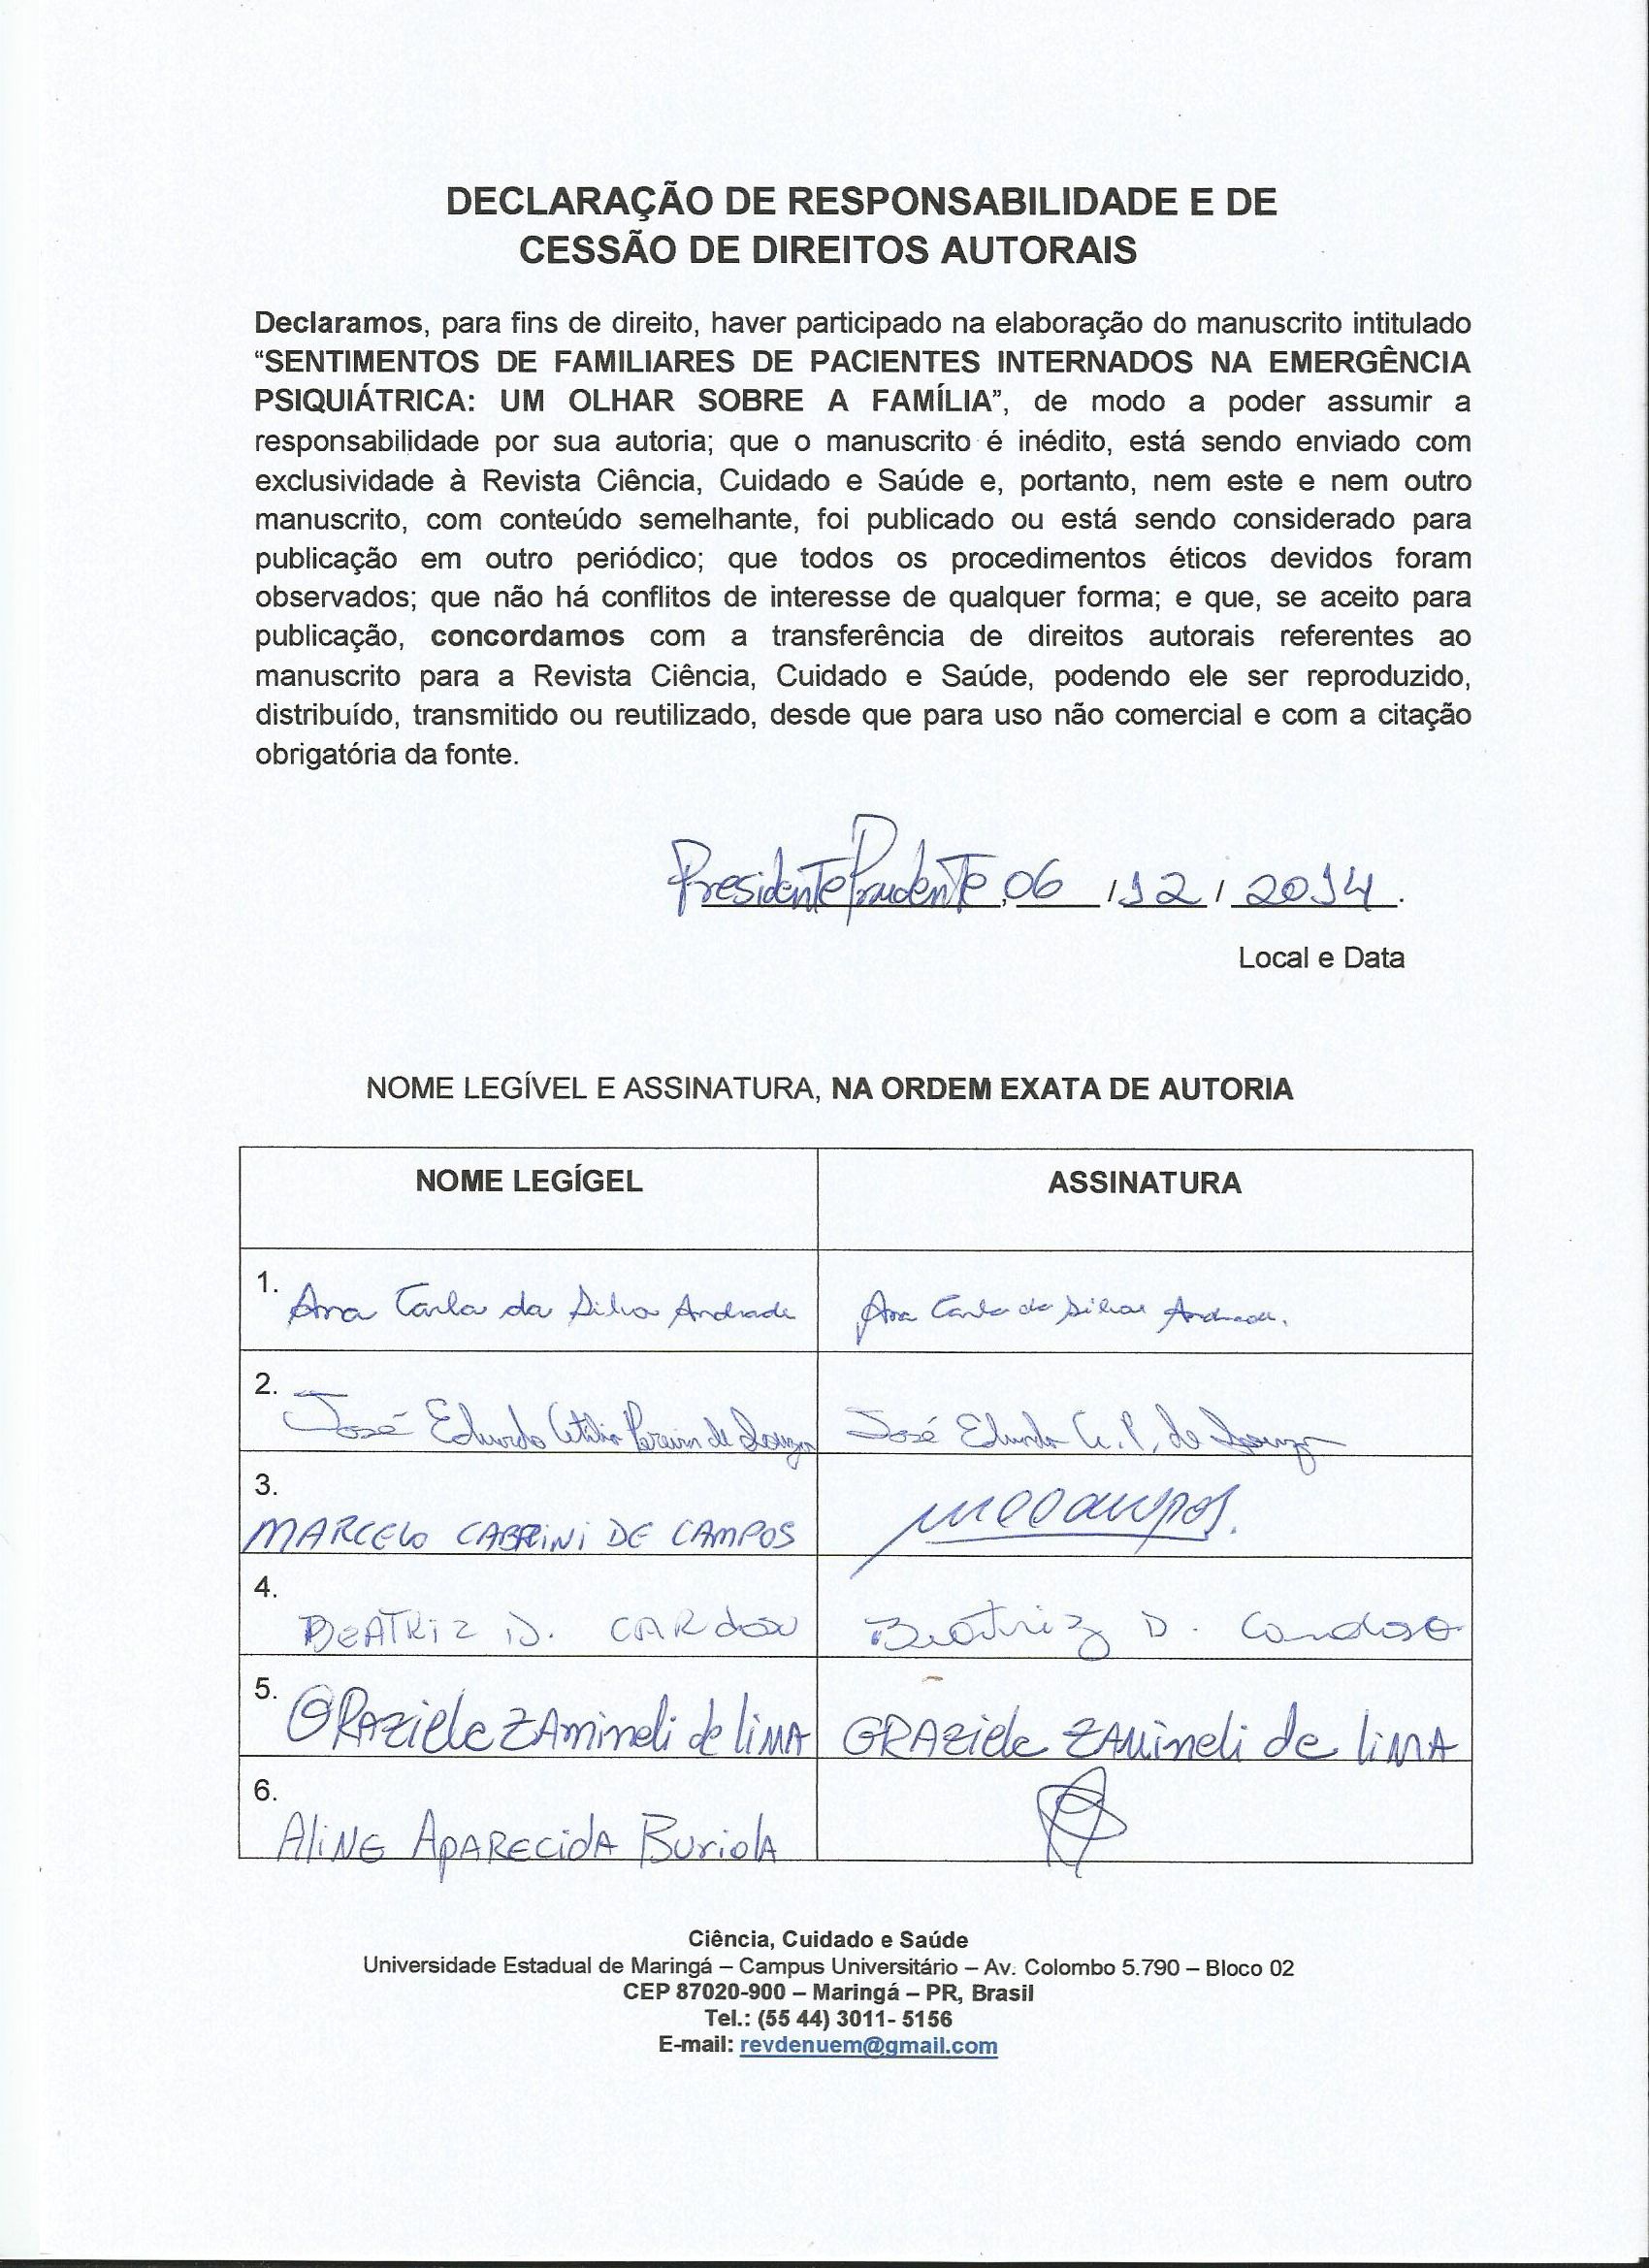 DECLARAÇÃO DE RESPONSABILIDADE E DE
CESSÃO DE DIREITOS AUTORAIS
Declaramos, para fins de direito, haver participado na elaboração do manuscrito intitulado
“SENTIMENTOS DE FAMILIARES DE PACIENTES INTERNADOS NA EMERGÊNCIA
PSIQUIÁTRICA: UM OLHAR SOBRE A FAMÍLIA”, de modo a poder assumir a
responsabilidade por sua autoria; que o manuscrito é inédito, está sendo enviado com
exclusividade à Revista Ciência, Cuidado e Saúde e, portanto, nem este e nem outro
manuscrito, com conteúdo semelhante, foi publicado ou está sendo considerado para
publicação em outro periódico; que todos os procedimentos éticos devidos foram
observados; que não há conflitos de interesse de qualquer forma; e que, se aceito para
publicação, concordamos com a transferência de direitos autorais referentes ao
manuscrito para a Revista Ciência, Cuidado e Saúde, podendo ele ser reproduzido,
distribuído, transmitido ou reutilizado, desde que para uso não comercial e com a citação
obrigatória da fonte.
Presidente Prudente, 06 / 12 / 2014.
Local e Data
NOME LEGÍVEL E ASSINATURA, NA ORDEM EXATA DE AUTORIA
NOME LEGÍGEL ASSINATURA
1. Ana Carla da Silva Andrade Ana Carla da Silva Andrade.
2. José Eduardo Pereira de Souza José Eduardo P. de Souza
3. MARCELO CABRINI DE CAMPOS
4. BEATRIZ D. CARDOSO Beatriz D. Cardoso
5. GRAziele ZAmineli de liMA GRAziele ZAmineli de liMA
6. AliNE APARECidA BuriolA
Ciência, Cuidado e Saúde
Universidade Estadual de Maringá – Campus Universitário – Av. Colombo 5.790 – Bloco 02
CEP 87020-900 – Maringá – PR, Brasil
Tel.: (55 44) 3011- 5156
E-mail: revdenuem@gmail.com